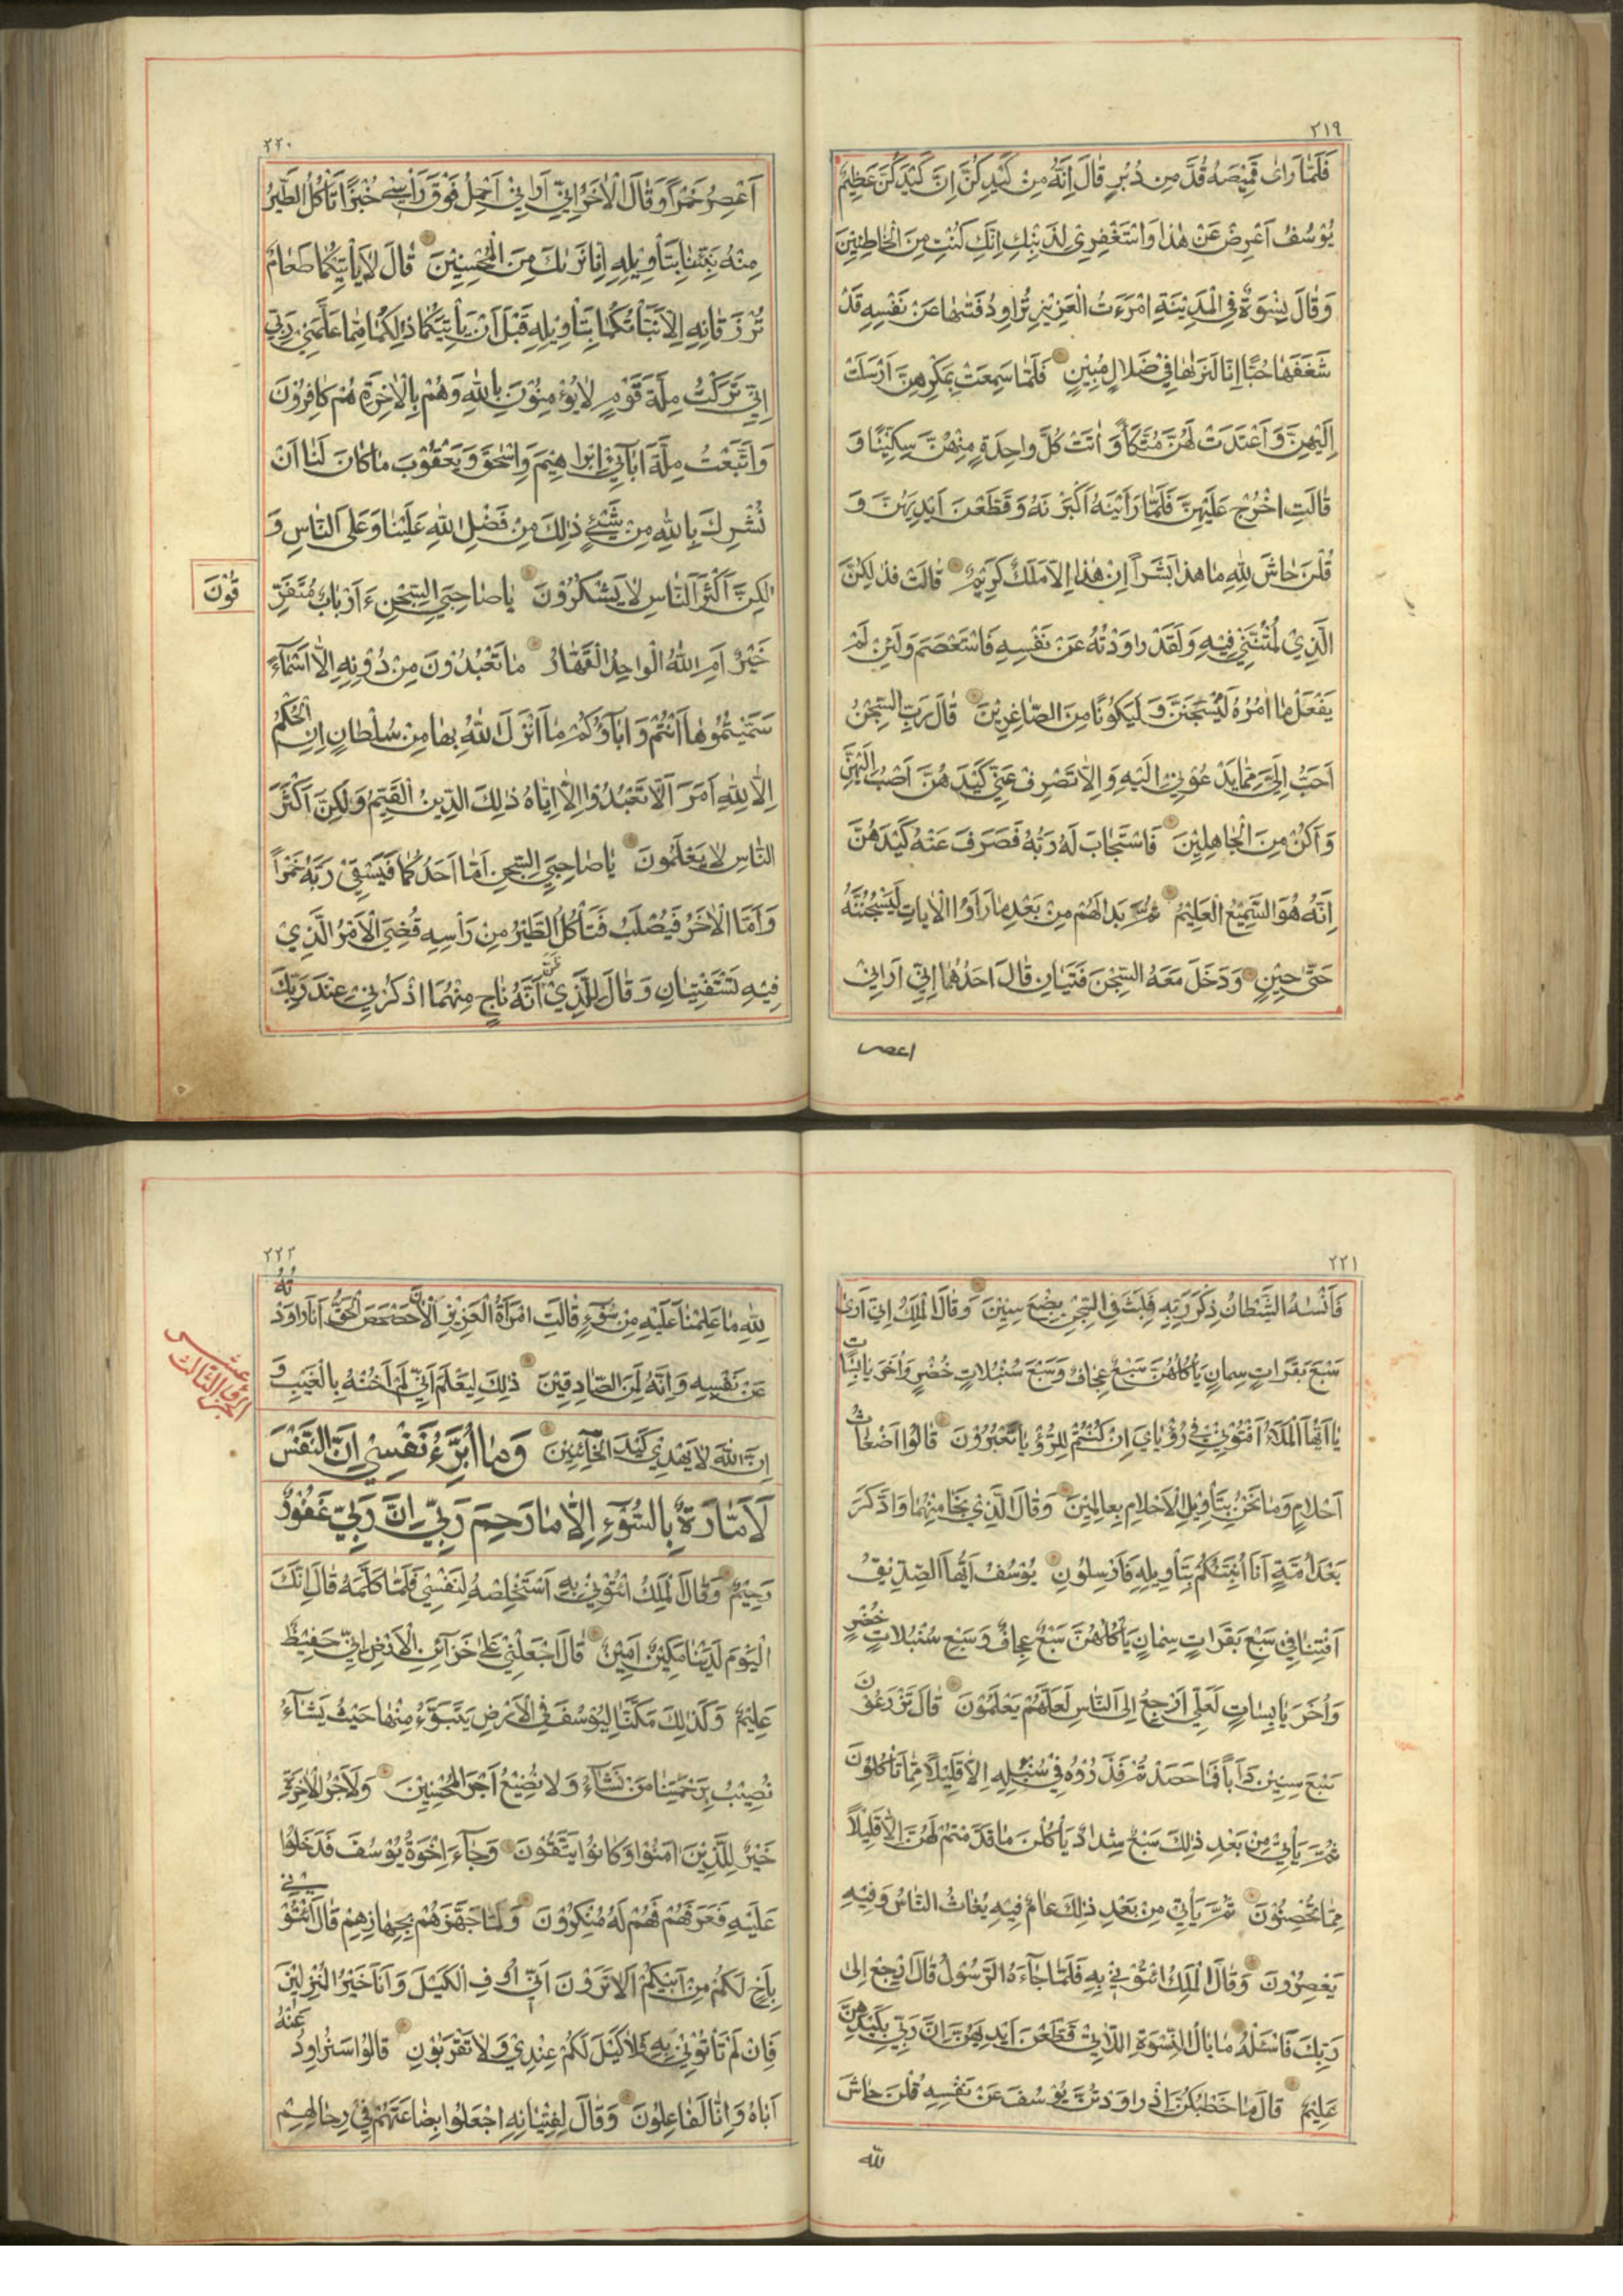 ٢١٩
فَلَمّٰا رَاٰى قَمِيْصَهُ قُدَّ مِن دُبُرٍ قٰالَ اِنَّهُ مِنْ كَيْدِكُنَّ اِنَّ كَيْدَكُنَّ عَظِيْمٌ
يُوْسُفُ اَعْرِضْ عَنْ هٰذٰا وَاسْتَغْفِرِيْ لِذَنْبِكِ اِنَّكِ كُنْتِ مِنَ الْخٰاطِئِيْنَ
وَقٰالَ نِسْوَةٌ فِى الْمَدِيْنَةِ امْرَءَتُ الْعَزِيْزِ تُرٰاوِدُ فَتٰىهٰا عَنْ نَفْسِهِ قَدْ
شَغَفَهٰا حُبًّا اِنّٰا لَنَرٰىهٰا فِيْ ضَلٰالٍ مُبِيْنٍ فَلَمّٰا سَمِعَتْ بِمَكْرِهِنَّ اَرْسَلَتْ
اِلَيْهِنَّ وَ اَعْتَدَتْ لَهُنَّ مُتَّكَأً وَ اٰتَتْ كُلَّ وٰاحِدَةٍ مِنْهُنَّ سِكِّيْنًا وَ
قٰالَتِ اخْرُجْ عَلَيْهِنَّ فَلَمّٰا رَاَيْنَهُ اَكْبَرْنَهُ وَ قَطَّعْنَ اَيْدِيَهُنَّ وَ
قُلْنَ حٰاشَ لِلّٰهِ مٰا هٰذٰا بَشَراً اِنْ هٰذٰا اِلّٰا مَلَكٌ كَرِيْمٌ قٰالَتْ فَذٰلِكُنَّ
الَّذِيْ لُمْتُنَّنِيْ فِيْهِ وَ لَقَدْ رٰاوَدْتُهُ عَنْ نَفْسِهِ فَاسْتَعْصَمَ وَ لَئِنْ لَمْ
يَفْعَلْ مٰا اٰمُرُهُ لَيُسْجَنَنَّ وَ لَيَكُوْنًا مِنَ الصّٰاغِرِيْنَ قٰالَ رَبِّ السِّجْنُ
اَحَبُّ اِلَيَّ مِمّٰا يَدْعُوْنَنِيْ اِلَيْهِ وَ اِلّٰا تَصْرِفْ عَنِّيْ كَيْدَهُنَّ اَصْبُ اِلَيْهِنَّ
وَ اَكُنْ مِنَ الْجٰاهِلِيْنَ فَاسْتَجٰابَ لَهُ رَبُّهُ فَصَرَفَ عَنْهُ كَيْدَهُنَّ
اِنَّهُ هُوَ السَّمِيْعُ الْعَلِيْمُ ثُمَّ بَدٰا لَهُمْ مِنْ بَعْدِ مٰا رَاَوُا الْاٰيٰاتِ لَيَسْجُنُنَّهُ
حَتّٰى حِيْنٍ وَ دَخَلَ مَعَهُ السِّجْنَ فَتَيٰانِ قٰالَ اَحَدُهُمٰا اِنِّيْ اَرٰانِيْ
اعصر
٢٢٠
اَعْصِرُ خَمْراً وَ قٰالَ الْاٰخَرُ اِنِّيْ اَرٰانِيْ اَحْمِلُ فَوْقَ رَأْسِيْ خُبْزًا تَأْكُلُ الطَّيْرُ
مِنْهُ نَبِّئْنٰا بِتَأْوِيْلِهِ اِنّٰا نَرٰىكَ مِنَ الْمُحْسِنِيْنَ قٰالَ لٰا يَأْتِيْكُمٰا طَعٰامٌ
تُرْزَقٰانِهِ اِلّٰا نَبَّأْتُكُمٰا بِتَأْوِيْلِهِ قَبْلَ اَنْ يَأْتِيَكُمٰا ذٰلِكُمٰا مِمّٰا عَلَّمَنِيْ رَبِّيْ
اِنِّيْ تَرَكْتُ مِلَّةَ قَوْمٍ لٰا يُؤْمِنُوْنَ بِاللّٰهِ وَ هُمْ بِالْاٰخِرَةِ هُمْ كٰافِرُوْنَ
وَ اتَّبَعْتُ مِلَّةَ اٰبٰآئِيْ اِبْرٰاهِيْمَ وَ اِسْحٰقَ وَ يَعْقُوْبَ مٰا كٰانَ لَنٰا اَنْ
نُشْرِكَ بِاللّٰهِ مِنْ شَيْئٍ ذٰلِكَ مِنْ فَضْلِ اللّٰهِ عَلَيْنٰا وَ عَلَى النّٰاسِ وَ
لٰكِنَّ اَكْثَرَ النّٰاسِ لٰا يَشْكُرُوْنَ يٰا صٰاحِبَيِ السِّجْنِ ءَاَرْبٰابٌ مُتَفَرِّ
قُوْنَ
خَيْرٌ اَمِ اللّٰهُ الْوٰاحِدُ الْقَهّٰارُ مٰا تَعْبُدُوْنَ مِنْ دُوْنِهِ اِلّٰا اَسْمٰآءً
سَمَّيْتُمُوْهٰا اَنْتُمْ وَ اٰبٰآؤُكُمْ مٰا اَنْزَلَ اللّٰهُ بِهٰا مِنْ سُلْطٰانٍ اِنِ الْحُكْمُ
اِلّٰا لِلّٰهِ اَمَرَ اَلّٰا تَعْبُدُوْا اِلّٰا اِيّٰاهُ ذٰلِكَ الدِّيْنُ الْقَيِّمُ وَ لٰكِنَّ اَكْثَرَ
النّٰاسِ لٰا يَعْلَمُوْنَ يٰا صٰاحِبَيِ السِّجْنِ اَمّٰا اَحَدُكُمٰا فَيَسْقِيْ رَبَّهُ خَمْراً
وَ اَمَّا الْاٰخَرُ فَيُصْلَبُ فَتَأْكُلُ الطَّيْرُ مِنْ رَأْسِهِ قُضِيَ الْاَمْرُ الَّذِيْ
فِيْهِ تَسْتَفْتِيٰانِ وَ قٰالَ لِلَّذِيْ ظَنَّ اَنَّهُ نٰاجٍ مِنْهُمَا اذْكُرْنِيْ عِنْدَ رَبِّكَ
٢٢١
فَاَنْسٰىهُ الشَّيْطٰانُ ذِكْرَ رَبِّهِ فَلَبِثَ فِى السِّجْنِ بِضْعَ سِنِيْنَ وَ قٰالَ الْمَلِكُ اِنِّيْ اَرٰى
سَبْعَ بَقَرٰاتٍ سِمٰانٍ يَأْكُلُهُنَّ سَبْعٌ عِجٰافٌ وَ سَبْعَ سُنْبُلٰاتٍ خُضْرٍ وَ اُخَرَ يٰابِسٰاتٍ
يٰا اَيُّهَا الْمَلَاُ اَفْتُوْنِيْ فِيْ رُؤْيٰايَ اِنْ كُنْتُمْ لِلرُّؤْيٰا تَعْبُرُوْنَ قٰالُوْا اَضْغٰاثُ
اَحْلٰامٍ وَ مٰا نَحْنُ بِتَأْوِيْلِ الْاَحْلٰامِ بِعٰالِمِيْنَ وَ قٰالَ الَّذِيْ نَجٰا مِنْهُمٰا وَ ادَّكَرَ
بَعْدَ اُمَّةٍ اَنَا اُنَبِّئُكُمْ بِتَأْوِيْلِهِ فَاَرْسِلُوْنِ يُوْسُفُ اَيُّهَا الصِّدِّيْقُ
اَفْتِنٰا فِيْ سَبْعِ بَقَرٰاتٍ سِمٰانٍ يَأْكُلُهُنَّ سَبْعٌ عِجٰافٌ وَ سَبْعِ سُنْبُلٰاتٍ خُضْرٍ
وَ اُخَرَ يٰابِسٰاتٍ لَعَلِّيْ اَرْجِعُ اِلَى النّٰاسِ لَعَلَّهُمْ يَعْلَمُوْنَ قٰالَ تَزْرَعُوْنَ
سَبْعَ سِنِيْنَ دَاَباً فَمٰا حَصَدْتُمْ فَذَرُوْهُ فِيْ سُنْبُلِهِ اِلّٰا قَلِيْلًا مِمّٰا تَأْكُلُوْنَ
ثُمَّ يَأْتِيْ مِنْ بَعْدِ ذٰلِكَ سَبْعٌ شِدٰادٌ يَأْكُلْنَ مٰا قَدَّمْتُمْ لَهُنَّ اِلّٰا قَلِيْلًا
مِمّٰا تُحْصِنُوْنَ ثُمَّ يَأْتِيْ مِنْ بَعْدِ ذٰلِكَ عٰامٌ فِيْهِ يُغٰاثُ النّٰاسُ وَ فِيْهِ
يَعْصِرُوْنَ وَ قٰالَ الْمَلِكُ ائْتُوْنِيْ بِهِ فَلَمّٰا جٰآءَهُ الرَّسُوْلُ قٰالَ ارْجِعْ اِلٰى
رَبِّكَ فَاسْئَلْهُ مٰا بٰالُ النِّسْوَةِ اللّٰاتِيْ قَطَّعْنَ اَيْدِيَهُنَّ اِنَّ رَبِّيْ بِكَيْدِهِنَّ
عَلِيْمٌ قٰالَ مٰا خَطْبُكُنَّ اِذْ رٰاوَدْتُنَّ يُوْسُفَ عَنْ نَفْسِهِ قُلْنَ حٰاشَ
لله
٢٢٢
لِلّٰهِ مٰا عَلِمْنٰا عَلَيْهِ مِنْ سُوْٓءٍ قٰالَتِ امْرَاَةُ الْعَزِيْزِ الْاٰنَ حَصْحَصَ الْحَقُّ اَنَا رٰاوَدْتُهُ
عَنْ نَفْسِهِ وَ اِنَّهُ لَمِنَ الصّٰادِقِيْنَ ذٰلِكَ لِيَعْلَمَ اَنِّيْ لَمْ اَخُنْهُ بِالْغَيْبِ وَ
الجزء الثالث عشر
اِنَّ اللّٰهَ لٰا يَهْدِيْ كَيْدَ الْخٰآئِنِيْنَ وَ مٰا اُبَرِّءُ نَفْسِيْ اِنَّ النَّفْسَ
لَاَمّٰارَةٌ بِالسُّوْٓءِ اِلّٰا مٰا رَحِمَ رَبِّيْ اِنَّ رَبِّيْ غَفُوْرٌ
رَحِيْمٌ وَ قٰالَ الْمَلِكُ ائْتُوْنِيْ بِهِ اَسْتَخْلِصْهُ لِنَفْسِيْ فَلَمّٰا كَلَّمَهُ قٰالَ اِنَّكَ
الْيَوْمَ لَدَيْنٰا مَكِيْنٌ اَمِيْنٌ قٰالَ اجْعَلْنِيْ عَلٰى خَزٰآئِنِ الْاَرْضِ اِنِّيْ حَفِيْظٌ
عَلِيْمٌ وَ كَذٰلِكَ مَكَّنّٰا لِيُوْسُفَ فِى الْاَرْضِ يَتَبَوَّءُ مِنْهٰا حَيْثُ يَشٰآءُ
نُصِيْبُ بِرَحْمَتِنٰا مَنْ نَشٰآءُ وَ لٰا نُضِيْعُ اَجْرَ الْمُحْسِنِيْنَ وَ لَاَجْرُ الْاٰخِرَةِ
خَيْرٌ لِلَّذِيْنَ اٰمَنُوْا وَ كٰانُوْا يَتَّقُوْنَ وَ جٰآءَ اِخْوَةُ يُوْسُفَ فَدَخَلُوْا
عَلَيْهِ فَعَرَفَهُمْ وَ هُمْ لَهُ مُنْكِرُوْنَ وَ لَمّٰا جَهَّزَهُمْ بِجَهٰازِهِمْ قٰالَ ائْتُوْنِيْ
بِاَخٍ لَكُمْ مِنْ اَبِيْكُمْ اَلٰا تَرَوْنَ اَنِّيْ اُوْفِ الْكَيْلَ وَ اَنَا خَيْرُ الْمُنْزِلِيْنَ
فَاِنْ لَمْ تَأْتُوْنِيْ بِهِ فَلٰا كَيْلَ لَكُمْ عِنْدِيْ وَ لٰا تَقْرَبُوْنِ قٰالُوْا سَنُرٰاوِدُ عَنْهُ
اَبٰاهُ وَ اِنّٰا لَفٰاعِلُوْنَ وَ قٰالَ لِفِتْيٰانِهِ اجْعَلُوْا بِضٰاعَتَهُمْ فِيْ رِحٰالِهِمْ